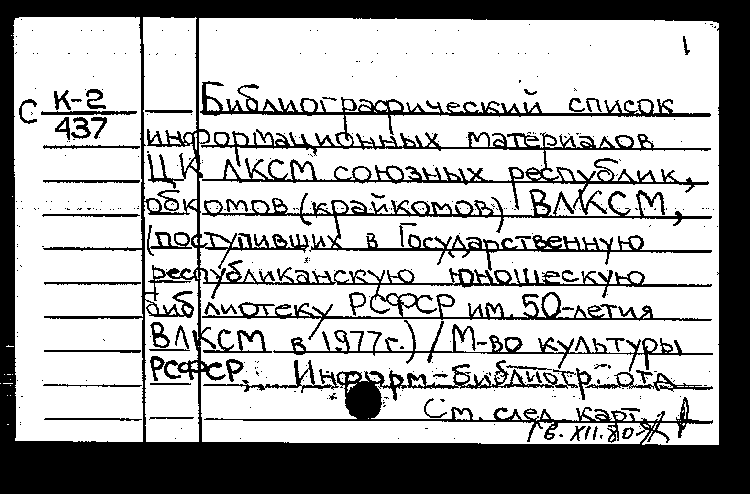 1
С К-2 Библиографический список
437
информационных материалов
ЦК ЛКСМ союзных республик,
обкомов (крайкомов) ВЛКСМ,
(поступивших в Государственную
республиканскую юношескую
библиотеку РСФСР им. 50-летия
ВЛКСМ в 1977г.) / М-во культуры
РСФСР, Информ-библиогр. отд
См. след. карт.
XII.80